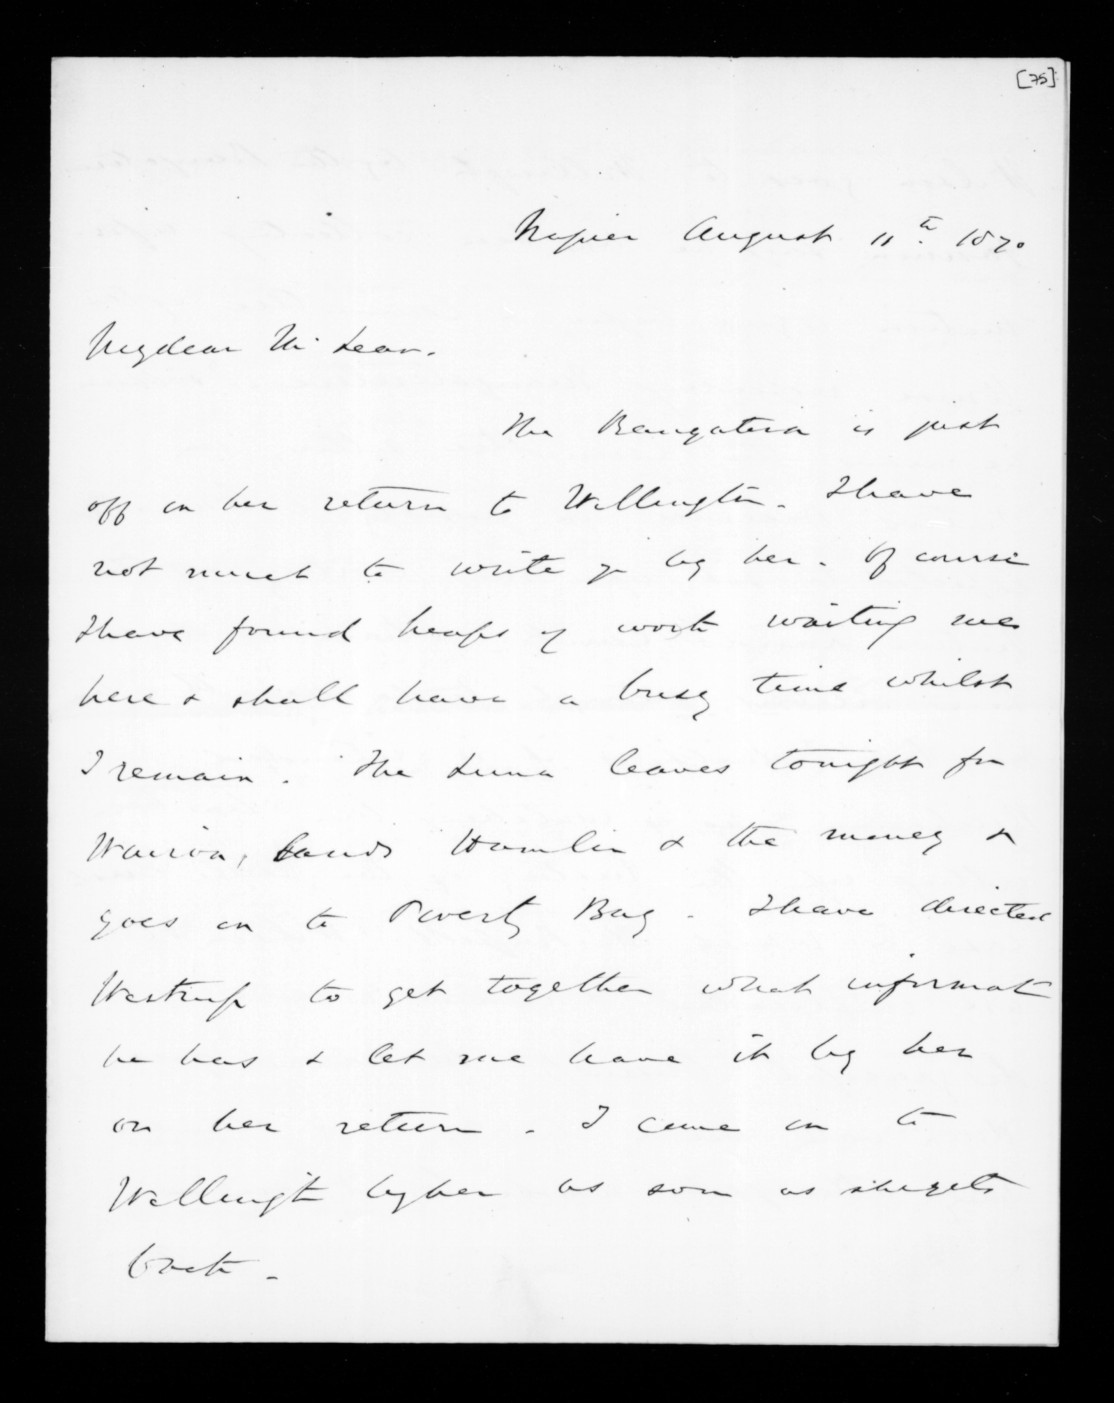 [75]
Napier August 11th. 1870
My dear McLean.
The Rangatira is just
off on her return to Wellington. I have
not much to write yr by her. Of course
I have found heaps of work waiting me
here & shall have a busy time whilst
I remain. The Luna leaves tonight for
Wairoa, lands Hamlin & the money &
goes on to Poverty Bay. I have directed
Westrup to get together what informat
he has & let me have it by her
on her return. I come on to
Wellingt by her as soon as she gets
back.